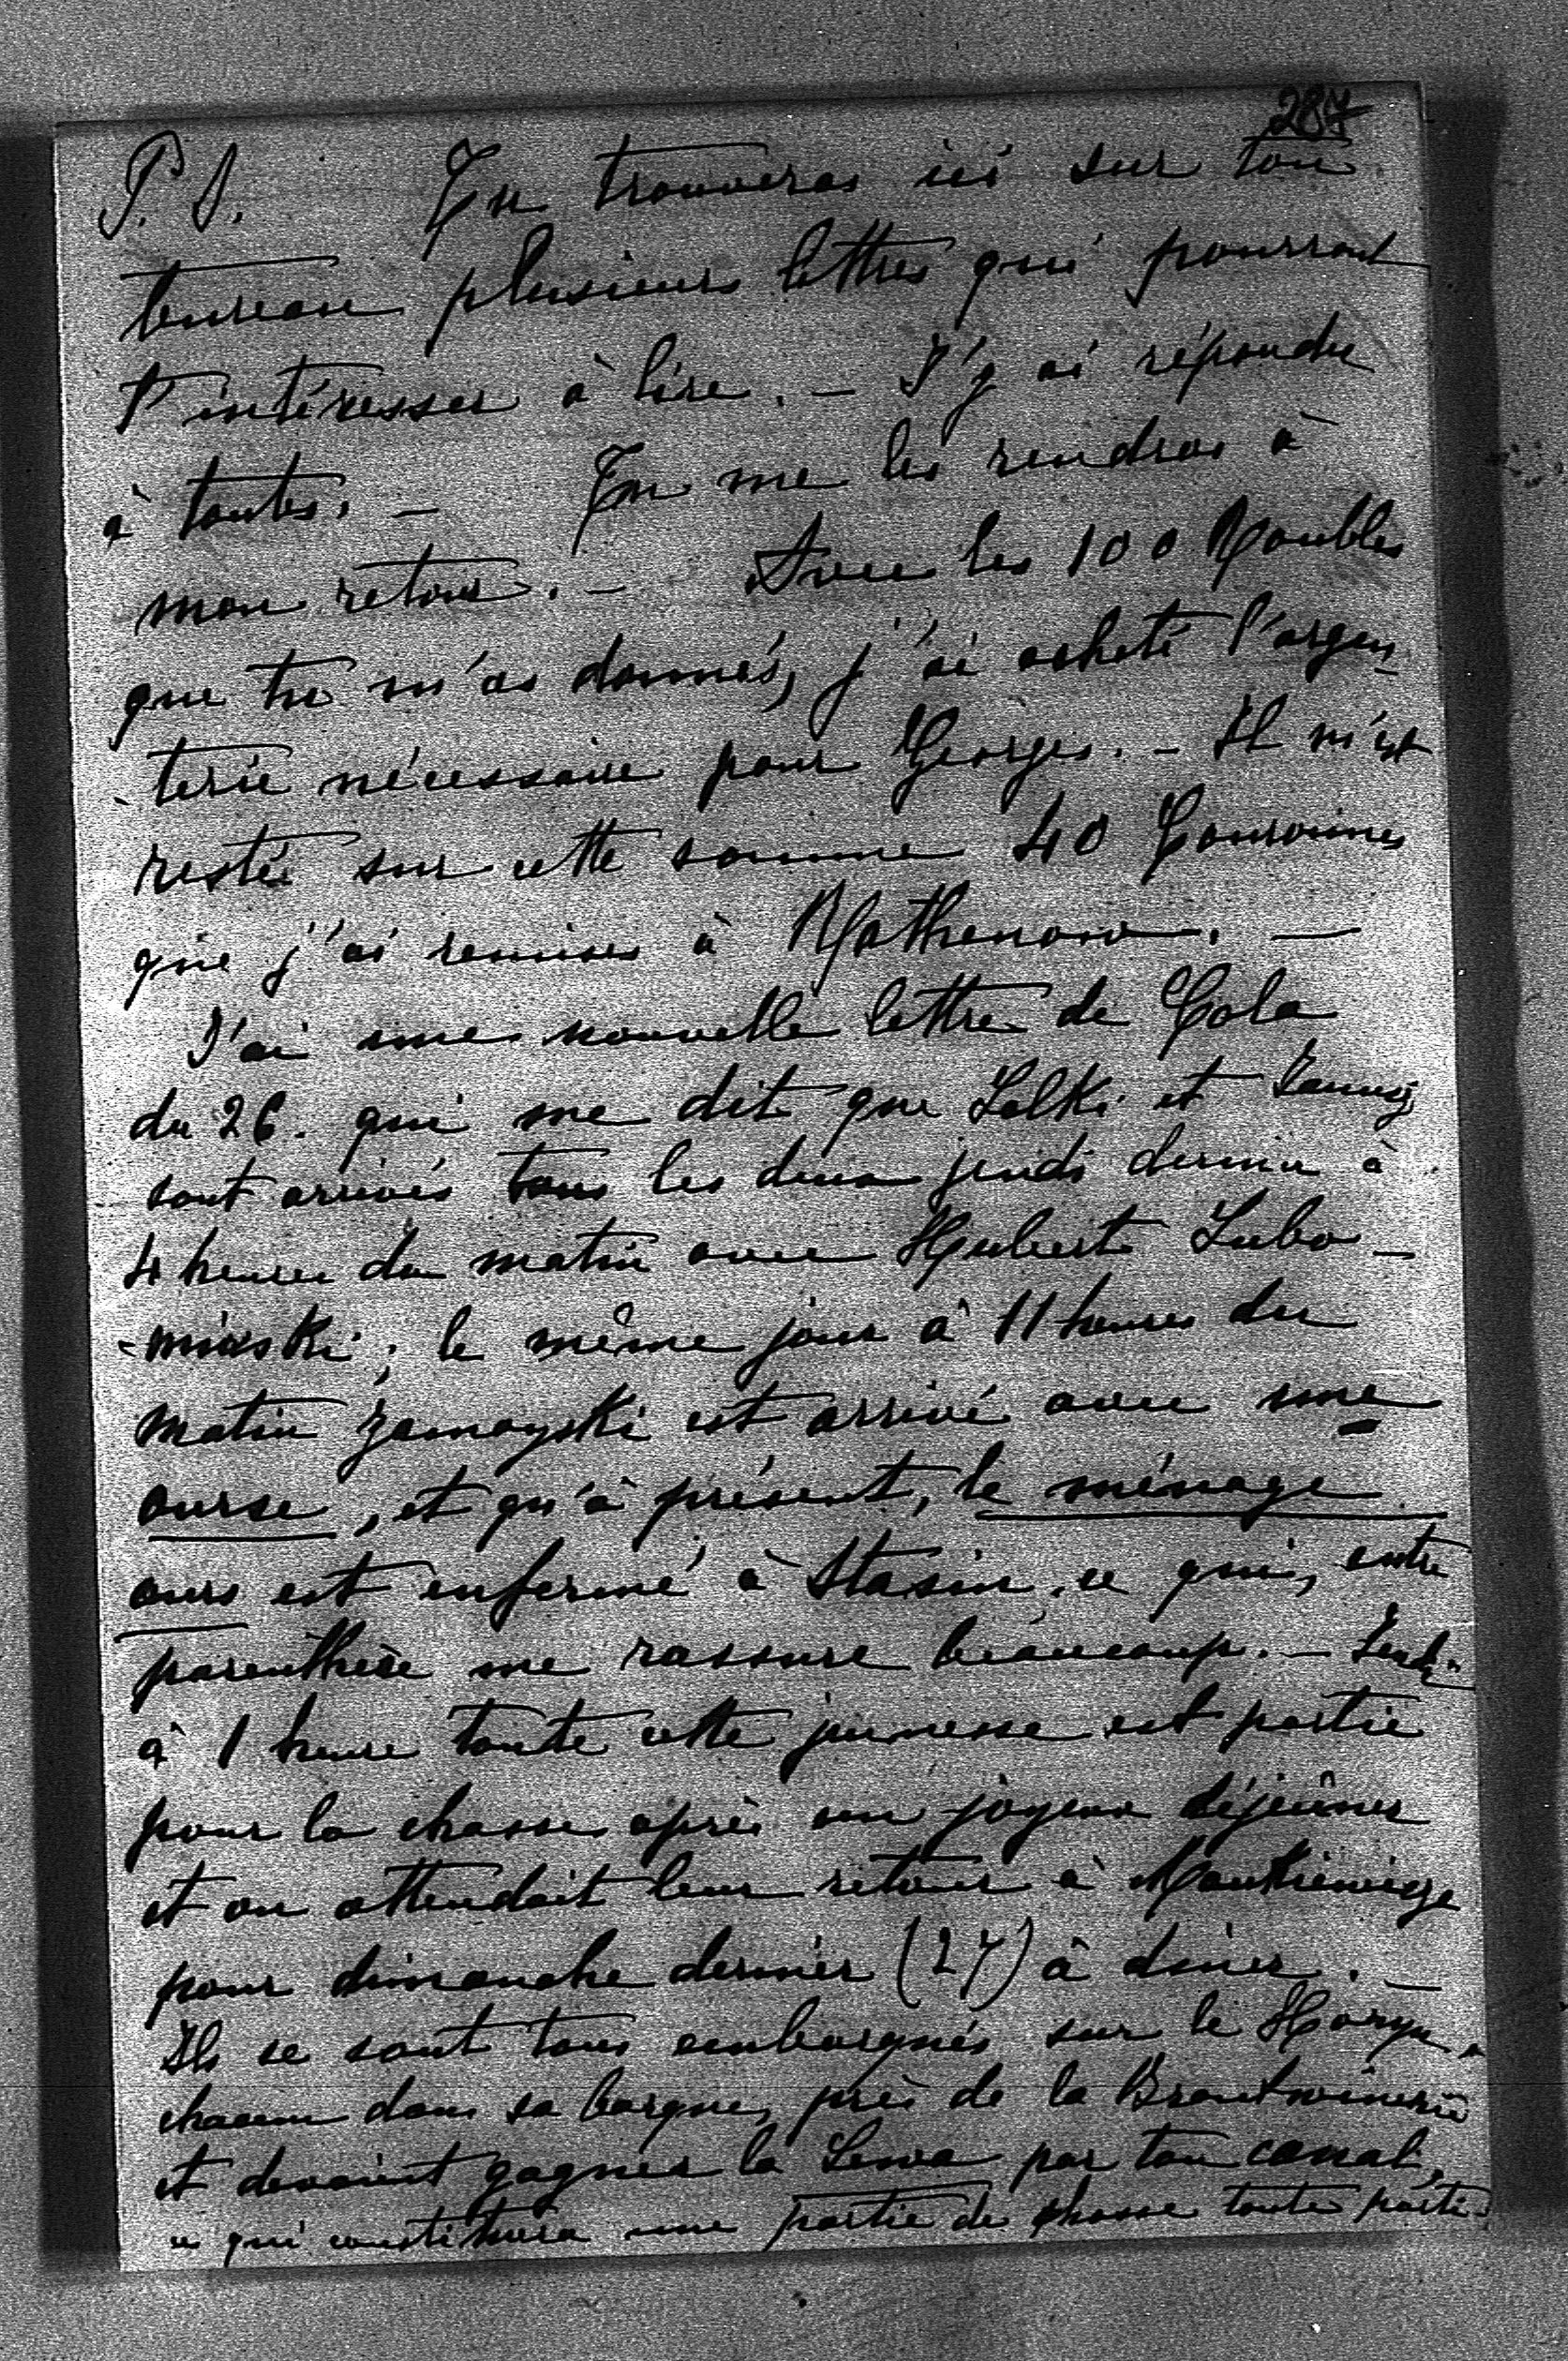 287
P. S. Tu trouveras ici sur ton
bureau plusieurs lettres qui pourront
t'intéresser à lire. — J'y ai répondu
à toutes. — Tu me les rendras à
mon retour. — Avec les 100 Roubles
que tu m'as donnés, j'ai acheté l'argen-
-terie nécessaire pour Georges. — Il m'est
resté sur cette somme 40 Couronnes
que j'ai remises à Rathenow. —
J'ai une nouvelle lettre de Cola
du 26. qui me dit que Lolki et
sont arrivés tous les deux jeudi dernier à
4 heures du matin avec Hubert Lubo-
-mirski; le même jour à 11 heures du
matin Zamoyski est arrivé avec une
ourse, et qu'à présent, le ménage
ours est enfermé à Stasin, ce qui, entre
parenthèse me rassure beaucoup. —
à 1 heure toute cette jeunesse est partie
pour la chasse après un joyeux déjeûner
et on attendait leur retour à Mankiewicze
pour dimanche dernier (27) à dîner. —
Ils se sont tous embarqués sur le Horyn,
chacun dans sa barque, près de la Brantwinerie
et devaient gagner la Lwa par ton canal,
ce qui constituera une partie de chasse toute parti-